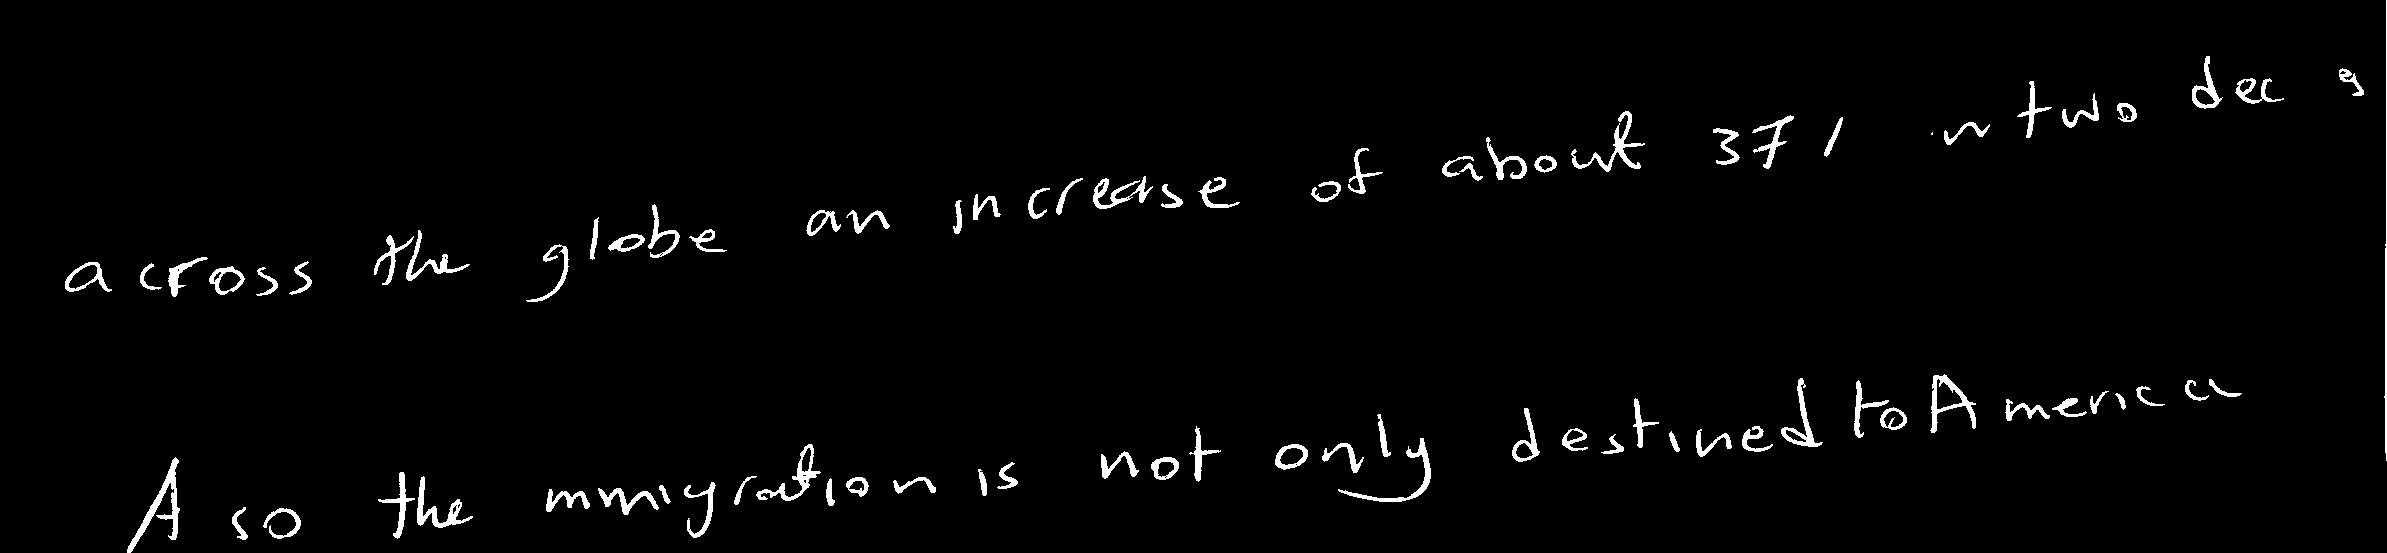 across the globe an increase of about 37% in two dec
Also the immigration is not only destined to America